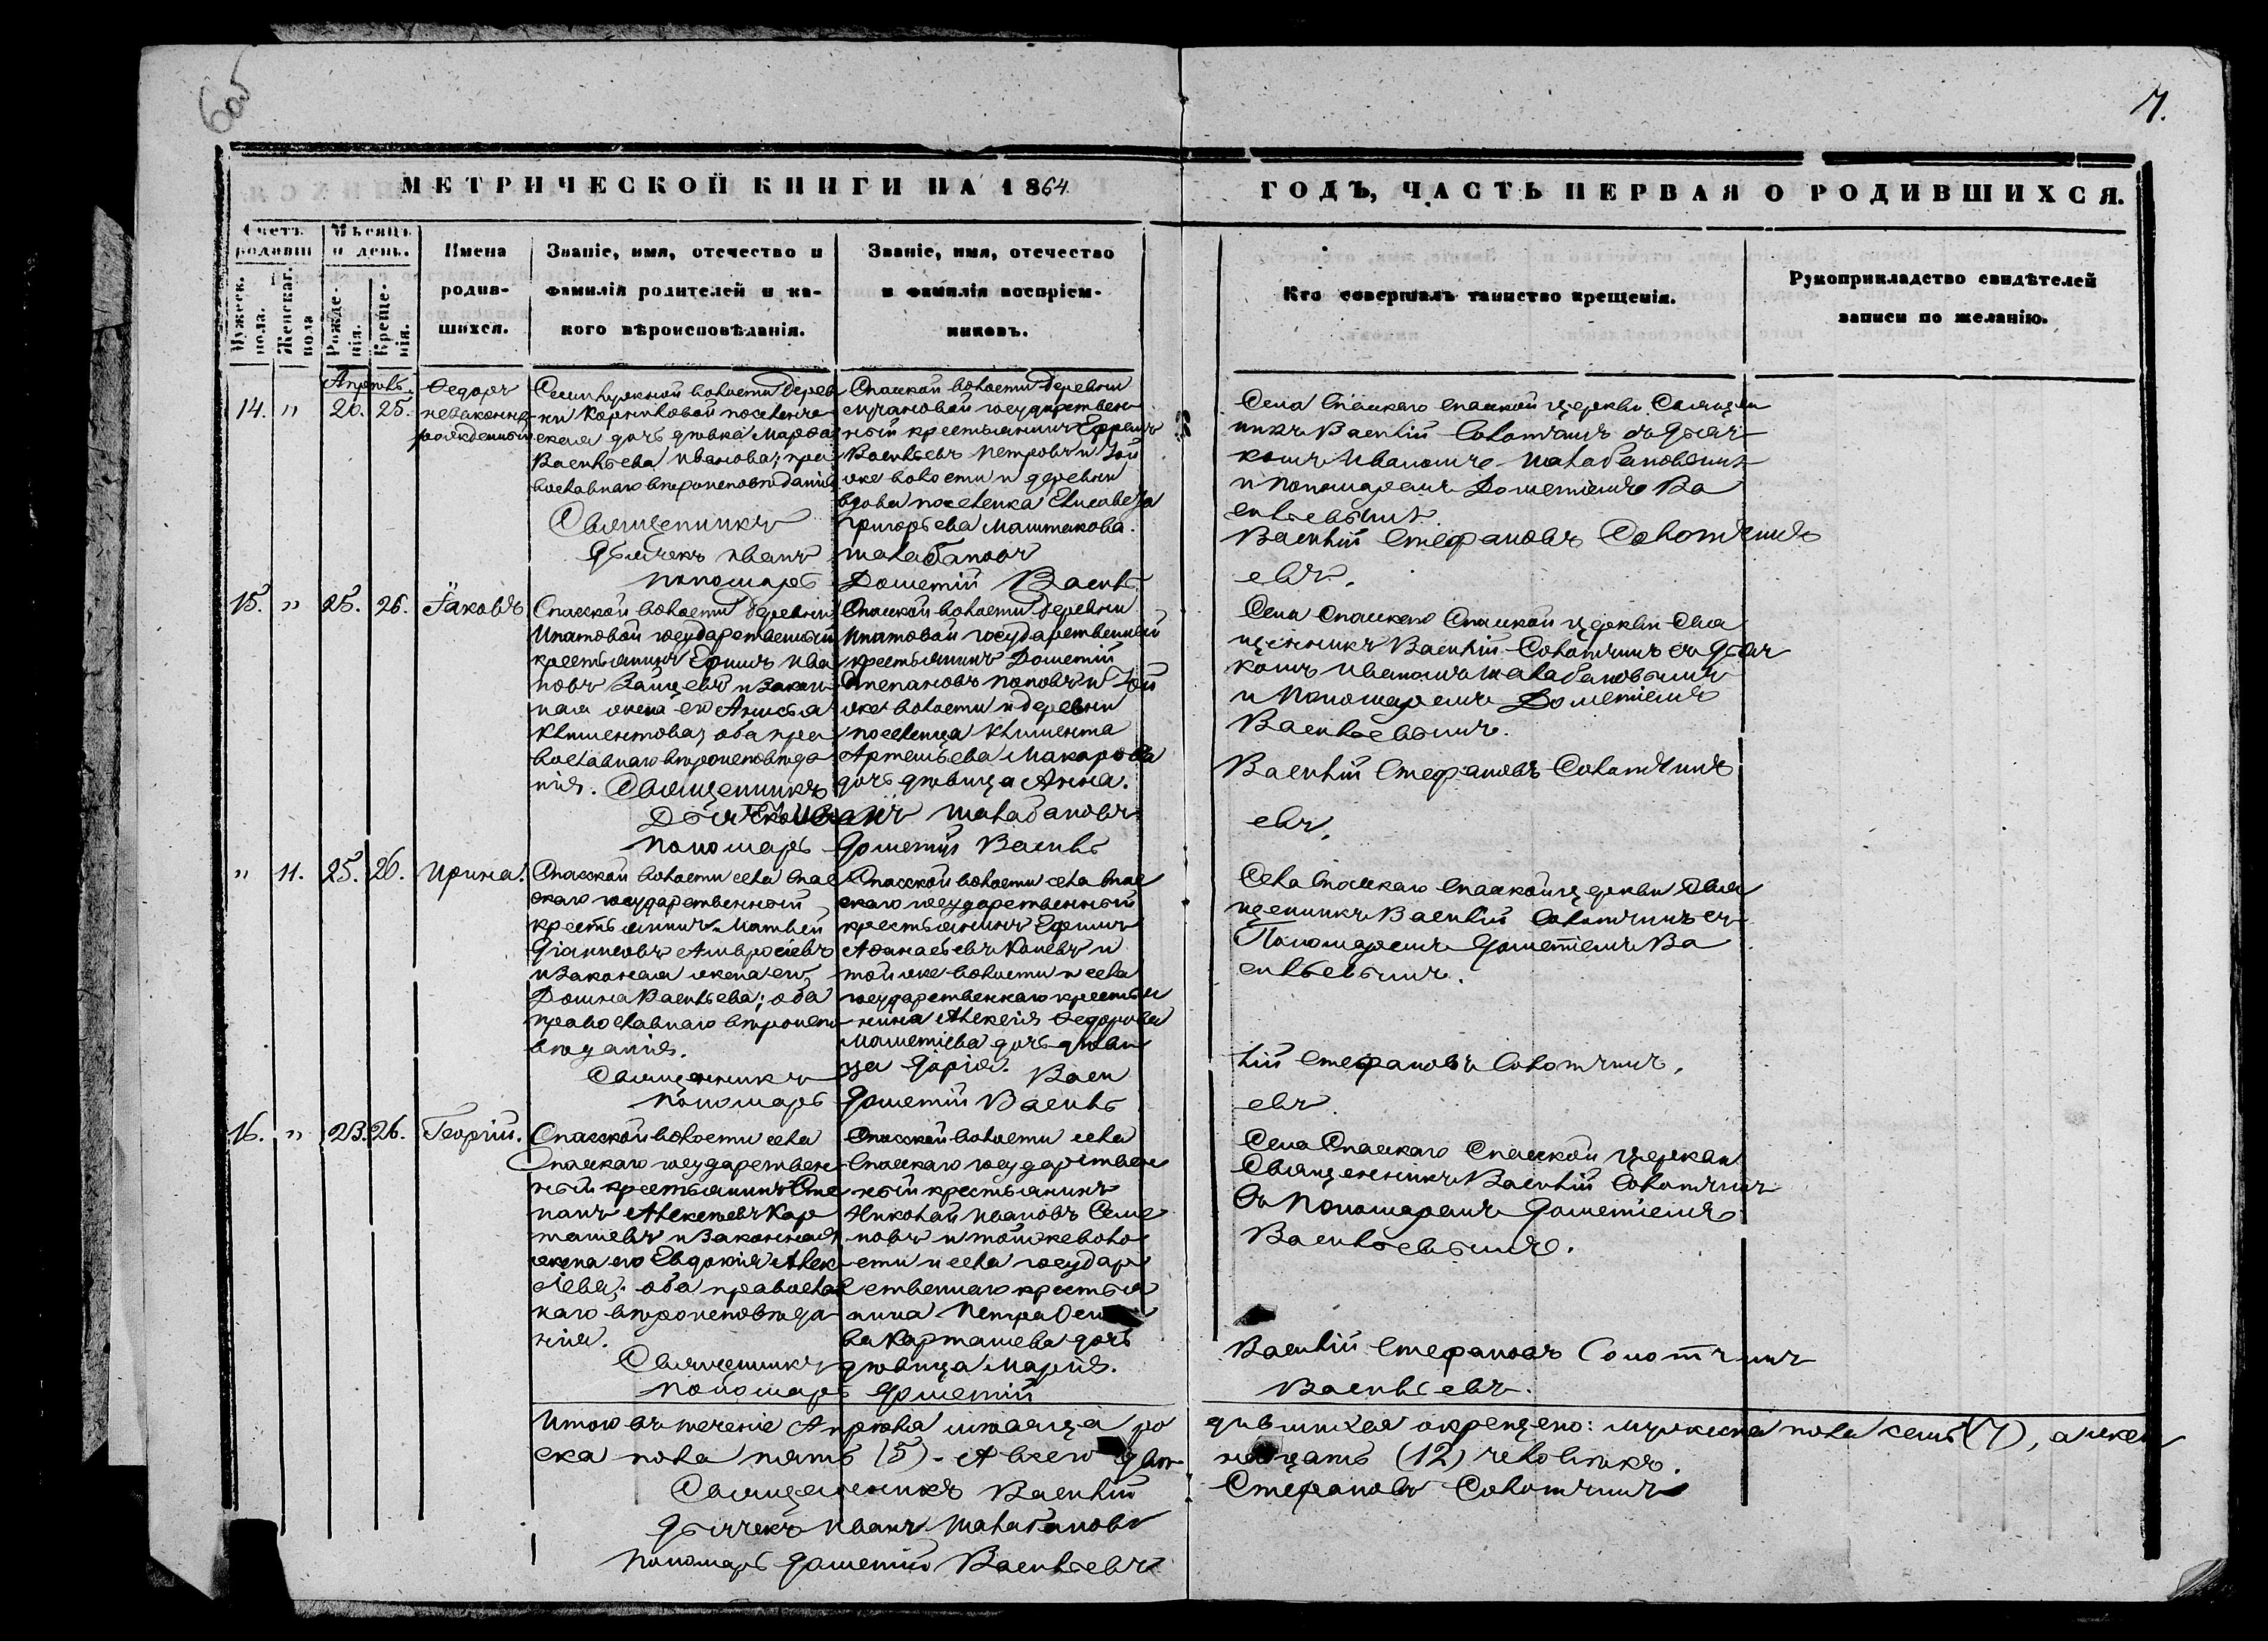 7.
МЕТРИЧЕСКОЙ КНИГИ НА 1864
ГОДЪ, ЧАСТЬ ПЕРВАЯ О РОДИВШИХСЯ.
Счетъ родивш
Мужеск. пола.
Женскаг. пола
Мѣсяцъ и день.
Рожде-нія.
Креще-нія.
Имена
родив-
шихся.
Званіе, имя, отечество и
фамилія родителей и ка-
кого вѣроисповѣданія.
Званіе, имя, отечество
и фамилія воспріем-
никовъ.
Кто совершалъ таинство крещенія.
Рукоприкладство свидѣтелей
записи по желанію.
Апрѣль.
14. " 20. 25.
Ѳедоръ
незаконно
рожденный
волости дерев
ни Корниловой поселенче
ская дочь дѣвка Марѳа
Васильева Иванова; пра
вославнаго вѣроисповѣданія
Священникъ
Дьячекъ Иванъ
Пономарь
Спасской волости деревни
государствен
ный крестьянинъ Ефремъ
Васильевъ Петровъ и той
же волости и деревни
вдова поселенка Елисавета
Григорьева Маштакова.
Шалабановъ
Дометій Василь
Села Спаскаго Спаской церкви Священ
никъ Василій Солотчинъ съ Дьяч
комъ Иваномъ Шалабановымъ
и Пономаремъ Дометіемъ Ва
сильевымъ.
Василій Стефановъ Солотчинъ
евъ.
15. " 25. 26.
Іаковъ
Спасской волости деревни
Ипатовой государственный
крестьянинъ Ефимъ Ива
новъ Зайцевъ и закон
ная жена его Анисья
Климентова; оба пра
вославнаго вѣроисповѣда
нія. Священникъ
Дьячекъ Иванъ
Пономарь
Спасской волости деревни
Ипатовой государственный
крестьянинъ Дометій
Степановъ Поповъ и той
же волости и деревни
поселенца Климента
Артемьева Макарова
дочь дѣвица Анна.
Шалабановъ
Дометій Василь
Села Спаскаго Спаской церкви Свя
щенникъ Василій Солотчинъ съ Дьяч
комъ Иваномъ Шалабановымъ
и Пономаремъ Дометіемъ
Васильевымъ.
Василій Стефановъ Солотчинъ
евъ.
" 11. 25. 26.
Ирина.
Спасской волости села Спас
скаго государственный
крестьянинъ Матвей
Діанисовъ Амвросіевъ
и законная жена его
Домна Васильева; оба
православнаго вѣроиспо
вѣданія.
Священникъ
Пономарь
Спасской волости села Спас
скаго государственный
крестьянинъ Ефимъ
Аѳанасьевъ Коневъ и
той же волости и села
государственнаго крестья
нина Алексія Ѳедорова
дочь дѣви
ца Дарія. Васи
Дометій Василь
Села Спаскаго Спаской церкви Свя
щенникъ Василій Солотчинъ съ
Пономаремъ Дометіемъ Ва
сильевымъ.
лій Стефановъ Солотчинъ,
евъ.
16. " 23. 26.
Георгій.
Спасской волости села
Спаскаго государствен
ный крестьянинъ Сте
панъ Алексѣевъ Кар
ташевъ и законная
жена его Евдокія Алек
сіева; оба православ
наго вѣроисповѣда
нія.
Священникъ
Пономарь
Спасской волости села
Спаскаго государствен
ный крестьянинъ
Николай Ивановъ Семе
новъ и той же воло
сти и села государ
ственнаго крестья
нина Петра
ва Карташева дочь
дѣвица Марія.
Дометій
Села Спаскаго Спаской церкви
Священникъ Василій Солотчинъ
Съ Пономаремъ Дометіемъ
Васильевымъ.
Василій Стефановъ Солотчинъ
Васильевъ.
Итого въ теченіе Апрѣля мѣсяца ро
дившихся окрещено: мужеска пола семь (7), а жен
ска пола пять (5). А всего двѣ
надцать (12) человѣкъ.
Священникъ Василій
Стефановъ Солотчинъ
Дьячекъ Иванъ Шалабановъ
Пономарь Дометій Васильевъ